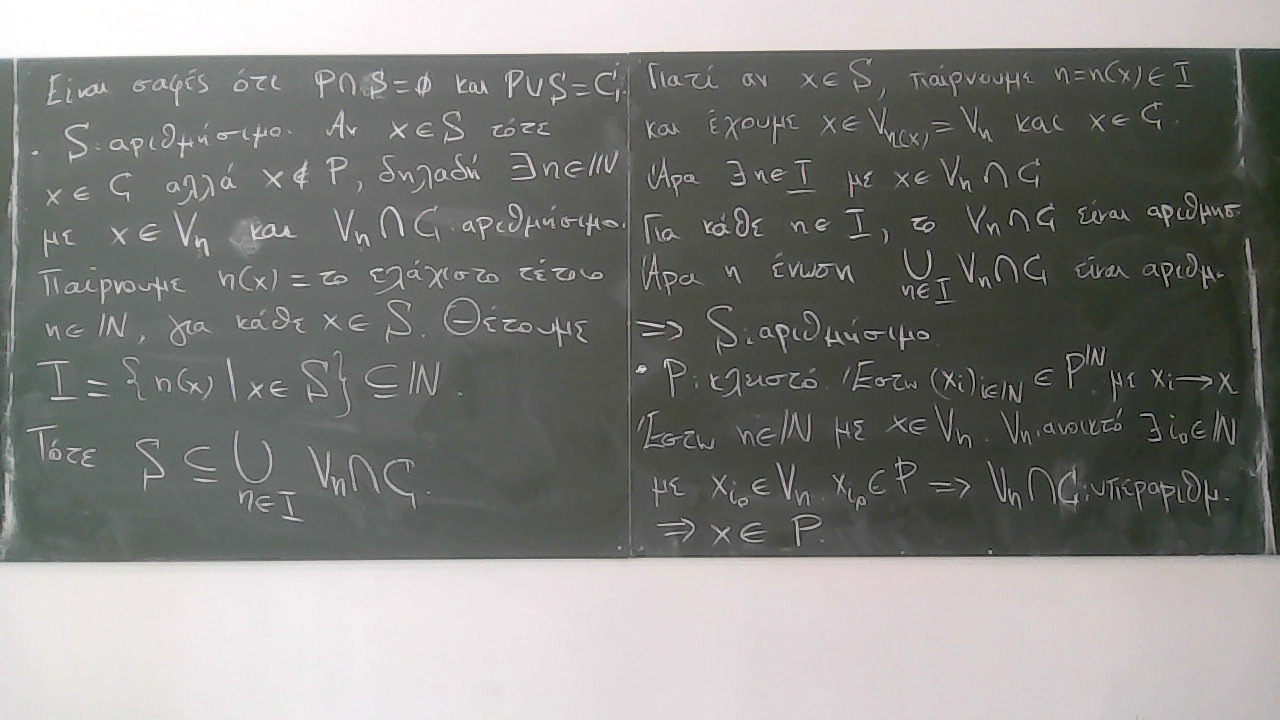 Είναι σαφές ότι P∩S=∅ και P∪S=C.
· S: αριθμήσιμο. Αν x∈S τότε
x∈C αλλά x∉P, δηλαδή ∃n∈ℕ
με x∈Vₙ και Vₙ∩C αριθμήσιμο.
Παίρνουμε n(x)=το ελάχιστο τέτοιο
n∈ℕ, για κάθε x∈S. Θέτουμε
I={n(x)|x∈S}⊆ℕ.
Τότε S⊆⋃_{n∈I} Vₙ∩C.
Γιατί αν x∈S, παίρνουμε n=n(x)∈I
και έχουμε x∈V_{n(x)}=Vₙ και x∈C.
Άρα ∃n∈I με x∈Vₙ∩C
Για κάθε n∈I, το Vₙ∩C είναι αριθμήσ.
Άρα η ένωση ⋃_{n∈I} Vₙ∩C είναι αριθμ.
⇒ S: αριθμήσιμο
· P: κλειστό. Έστω (xᵢ)_{i∈ℕ}∈P^ℕ με xᵢ→x
Έστω n∈ℕ με x∈Vₙ. Vₙ: ανοικτό ∃i₀∈ℕ
με x_{i₀}∈Vₙ x_{i₀}∈P ⇒ Vₙ∩C: υπεραριθμ.
⇒ x∈P.